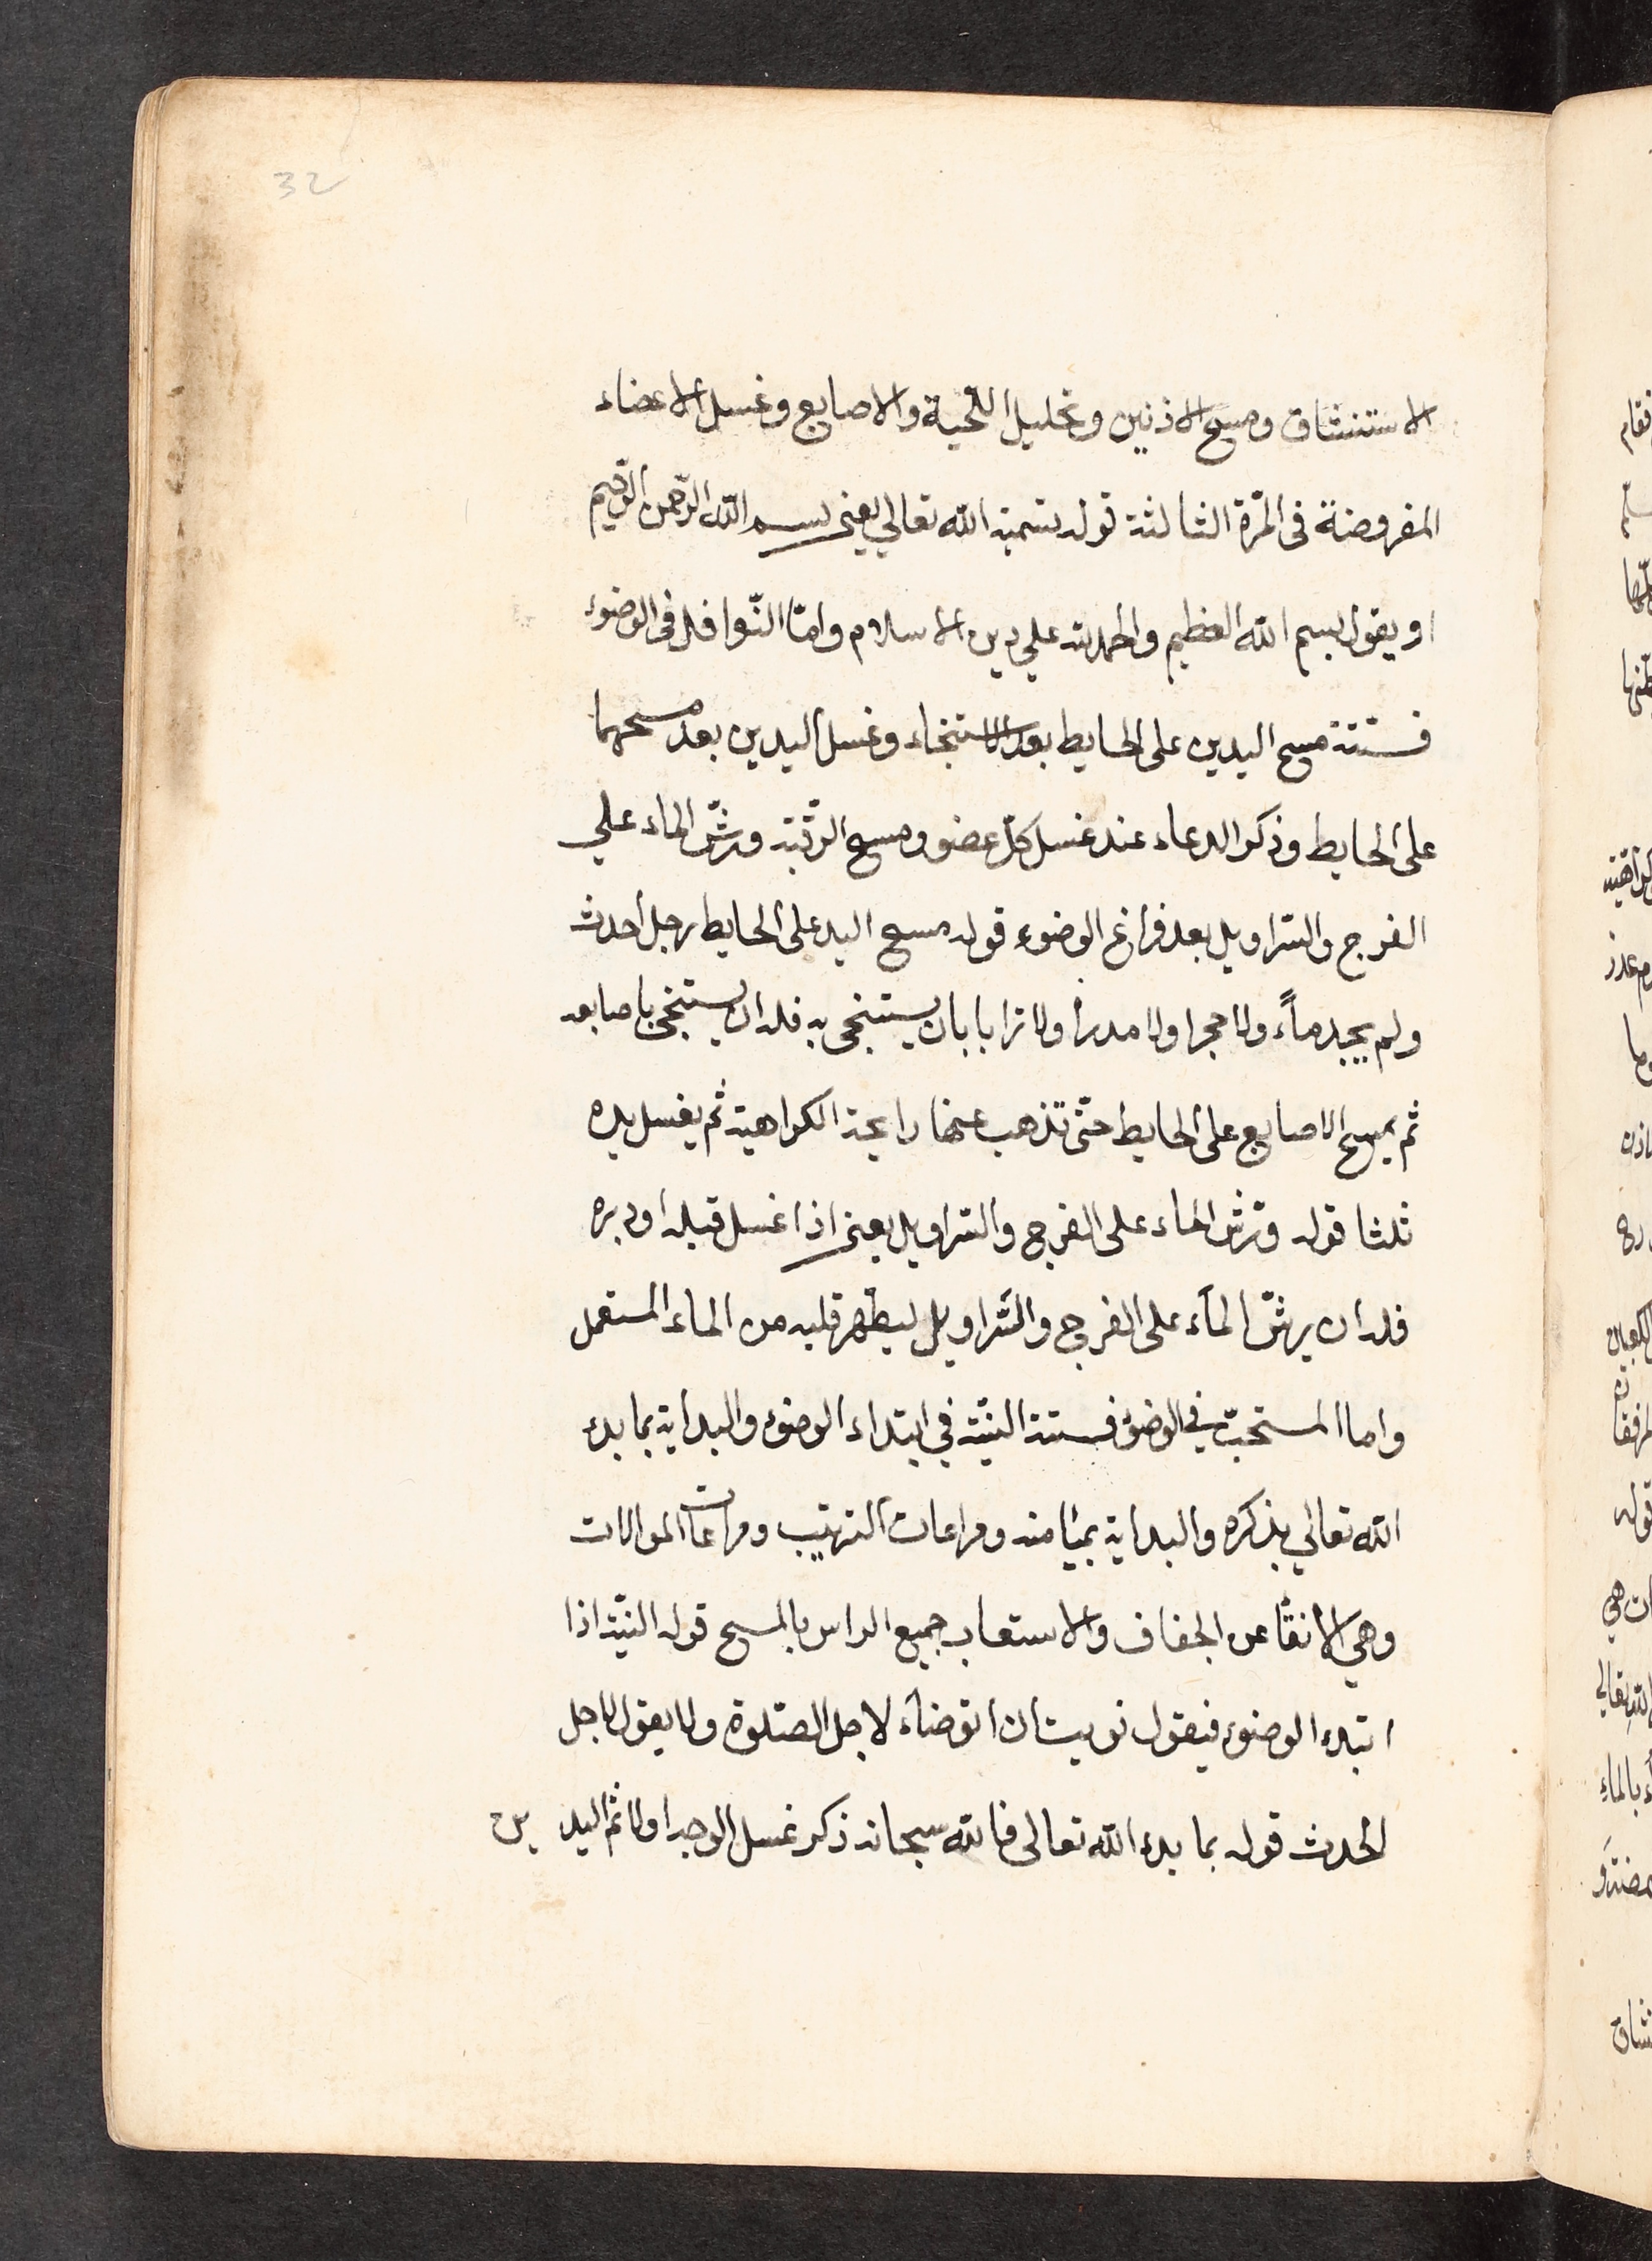 32
الاستنشاق ومسح الاذنين وتخليل اللحية والاصابع وغسل الاعضاء
المفروضة فى المرّة الثالثة قوله بتسمية الله تعالي يعنى بسم الله الرّحمن الرّحيم
او يقول بسم الله العظيم والحمد لله علي دين الاسلام وامّا النّوافل فى الوضوء
فستة مسح اليدين على الحايط بعد الاستنجاء وغسل اليدين بعد مسحهما
على الحايط وذكر الدعاء عند غسل كلّ عضو ومسح الرّقبة ورشّ الماء علي
الفرج والسّراويل بعد فراغ الوضوء قوله مسح اليد على الحايط رجل أحدث
ولم يجد ماًء ولا حجرا ولا مدرا ولا ترابا بان يستنجى به فله ان يستنجى باصابعه
ثم يمسح الاصابع على الحايط حتّى تذهب عنها رايحة الكراهية ثم يغسل يده
ثلثا قوله ورشّ الماء على الفرج والسّراويل يعنى اذا غسل قبله او دبره
فله ان يرشّ المآء على الفرج والسّراويل ليطهر قلبه من الماء المستعمل
واما المستحبّ في الوضوء فستة النيّة في ابتداء الوضوء والبداية بما بدء
الله تعالي بذكره والبداية بميامنه ومراعات الترتيب ومراعات الموالات
وهي الانقا عن الجفاف والاستعاب جميع الراس بالمسح قوله النيّة اذا
ابتدء الوضوء فيقول نويت ان اتوضاء لاجل الصّلوة ولا يقول لاجل
الحدث قوله بما بدء الله تعالى فالله سبحانه ذكر غسل الوجه اولا ثم اليدين